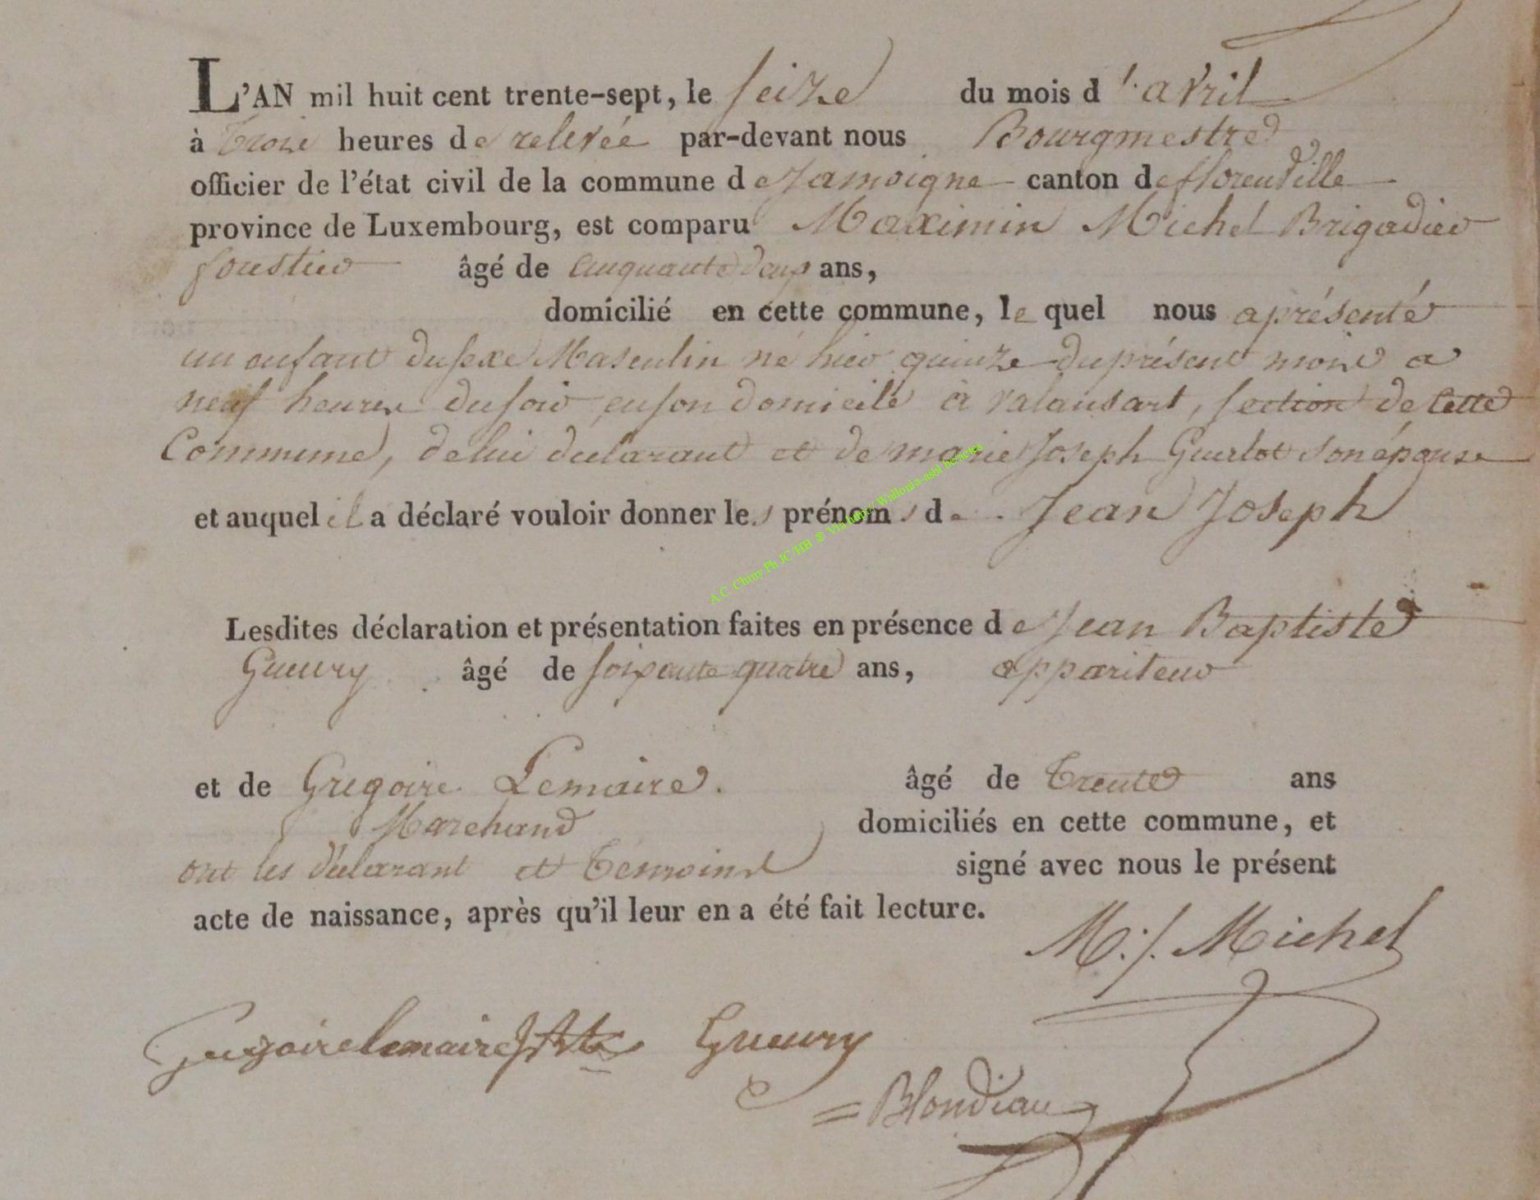 L'AN mil huit cent trente-sept, le seize du mois d'avril
à trois heures de relevée par-devant nous Bourgmestre
officier de l'état civil de la commune de Jamoigne canton de florenville
province de Luxembourg, est comparu Maximin Michel Brigadier
forestier âgé de cinquante deux ans,
domicilié en cette commune, le quel nous a présenté
un enfant du sexe Masculin né hier quinze du présent mois a
neuf heures du soir en son domicile à valansart, section de cette
Commune, de lui déclarant et de marie Joseph Guerlot son épouse
et auquel il a déclaré vouloir donner les prénoms de Jean Joseph
Lesdites déclaration et présentation faites en présence de Jean Baptiste
Gueury âgé de soixante quatre ans, appariteur
et de Grégoire Lemaire. âgé de trente ans
Marchand domiciliés en cette commune, et
ont les déclarant et témoins signé avec nous le présent
acte de naissance, après qu'il leur en a été fait lecture.
M:/. Michel
Gregoire lemaire J Bte Gueury
Blondiau